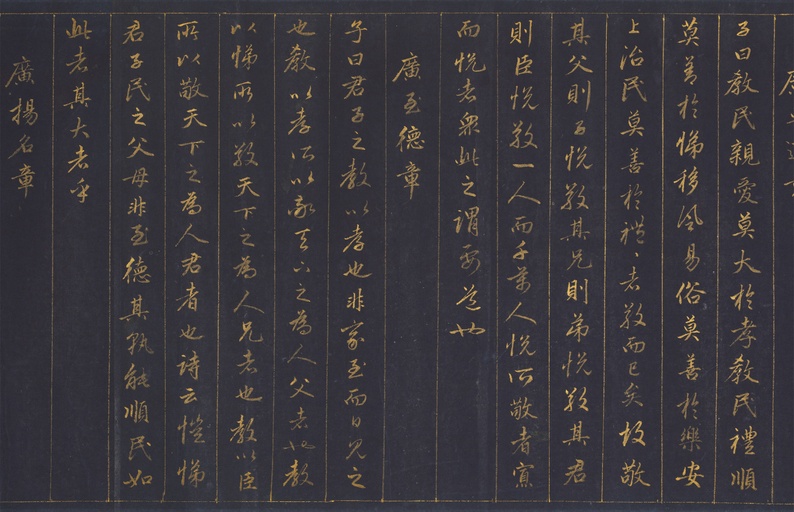 子曰教民親愛莫大於孝教民禮順
莫善於悌移風易俗莫善於樂安
上治民莫善於禮〻者敬而已矣故敬
其父則子悅敬其兄則弟悅敬其君
則臣悅敬一人而千萬人悅所敬者寡
而悅者眾此之謂要道也
廣至德章
子曰君子之教以孝也非家至而日見之
也教以孝所以敬天下之為人父者也教
以悌所以敬天下之為人兄者也教以臣
所以敬天下之為人君者也詩云愷悌
君子民之父母非至德其孰能順民如
此者其大者乎
廣揚名章